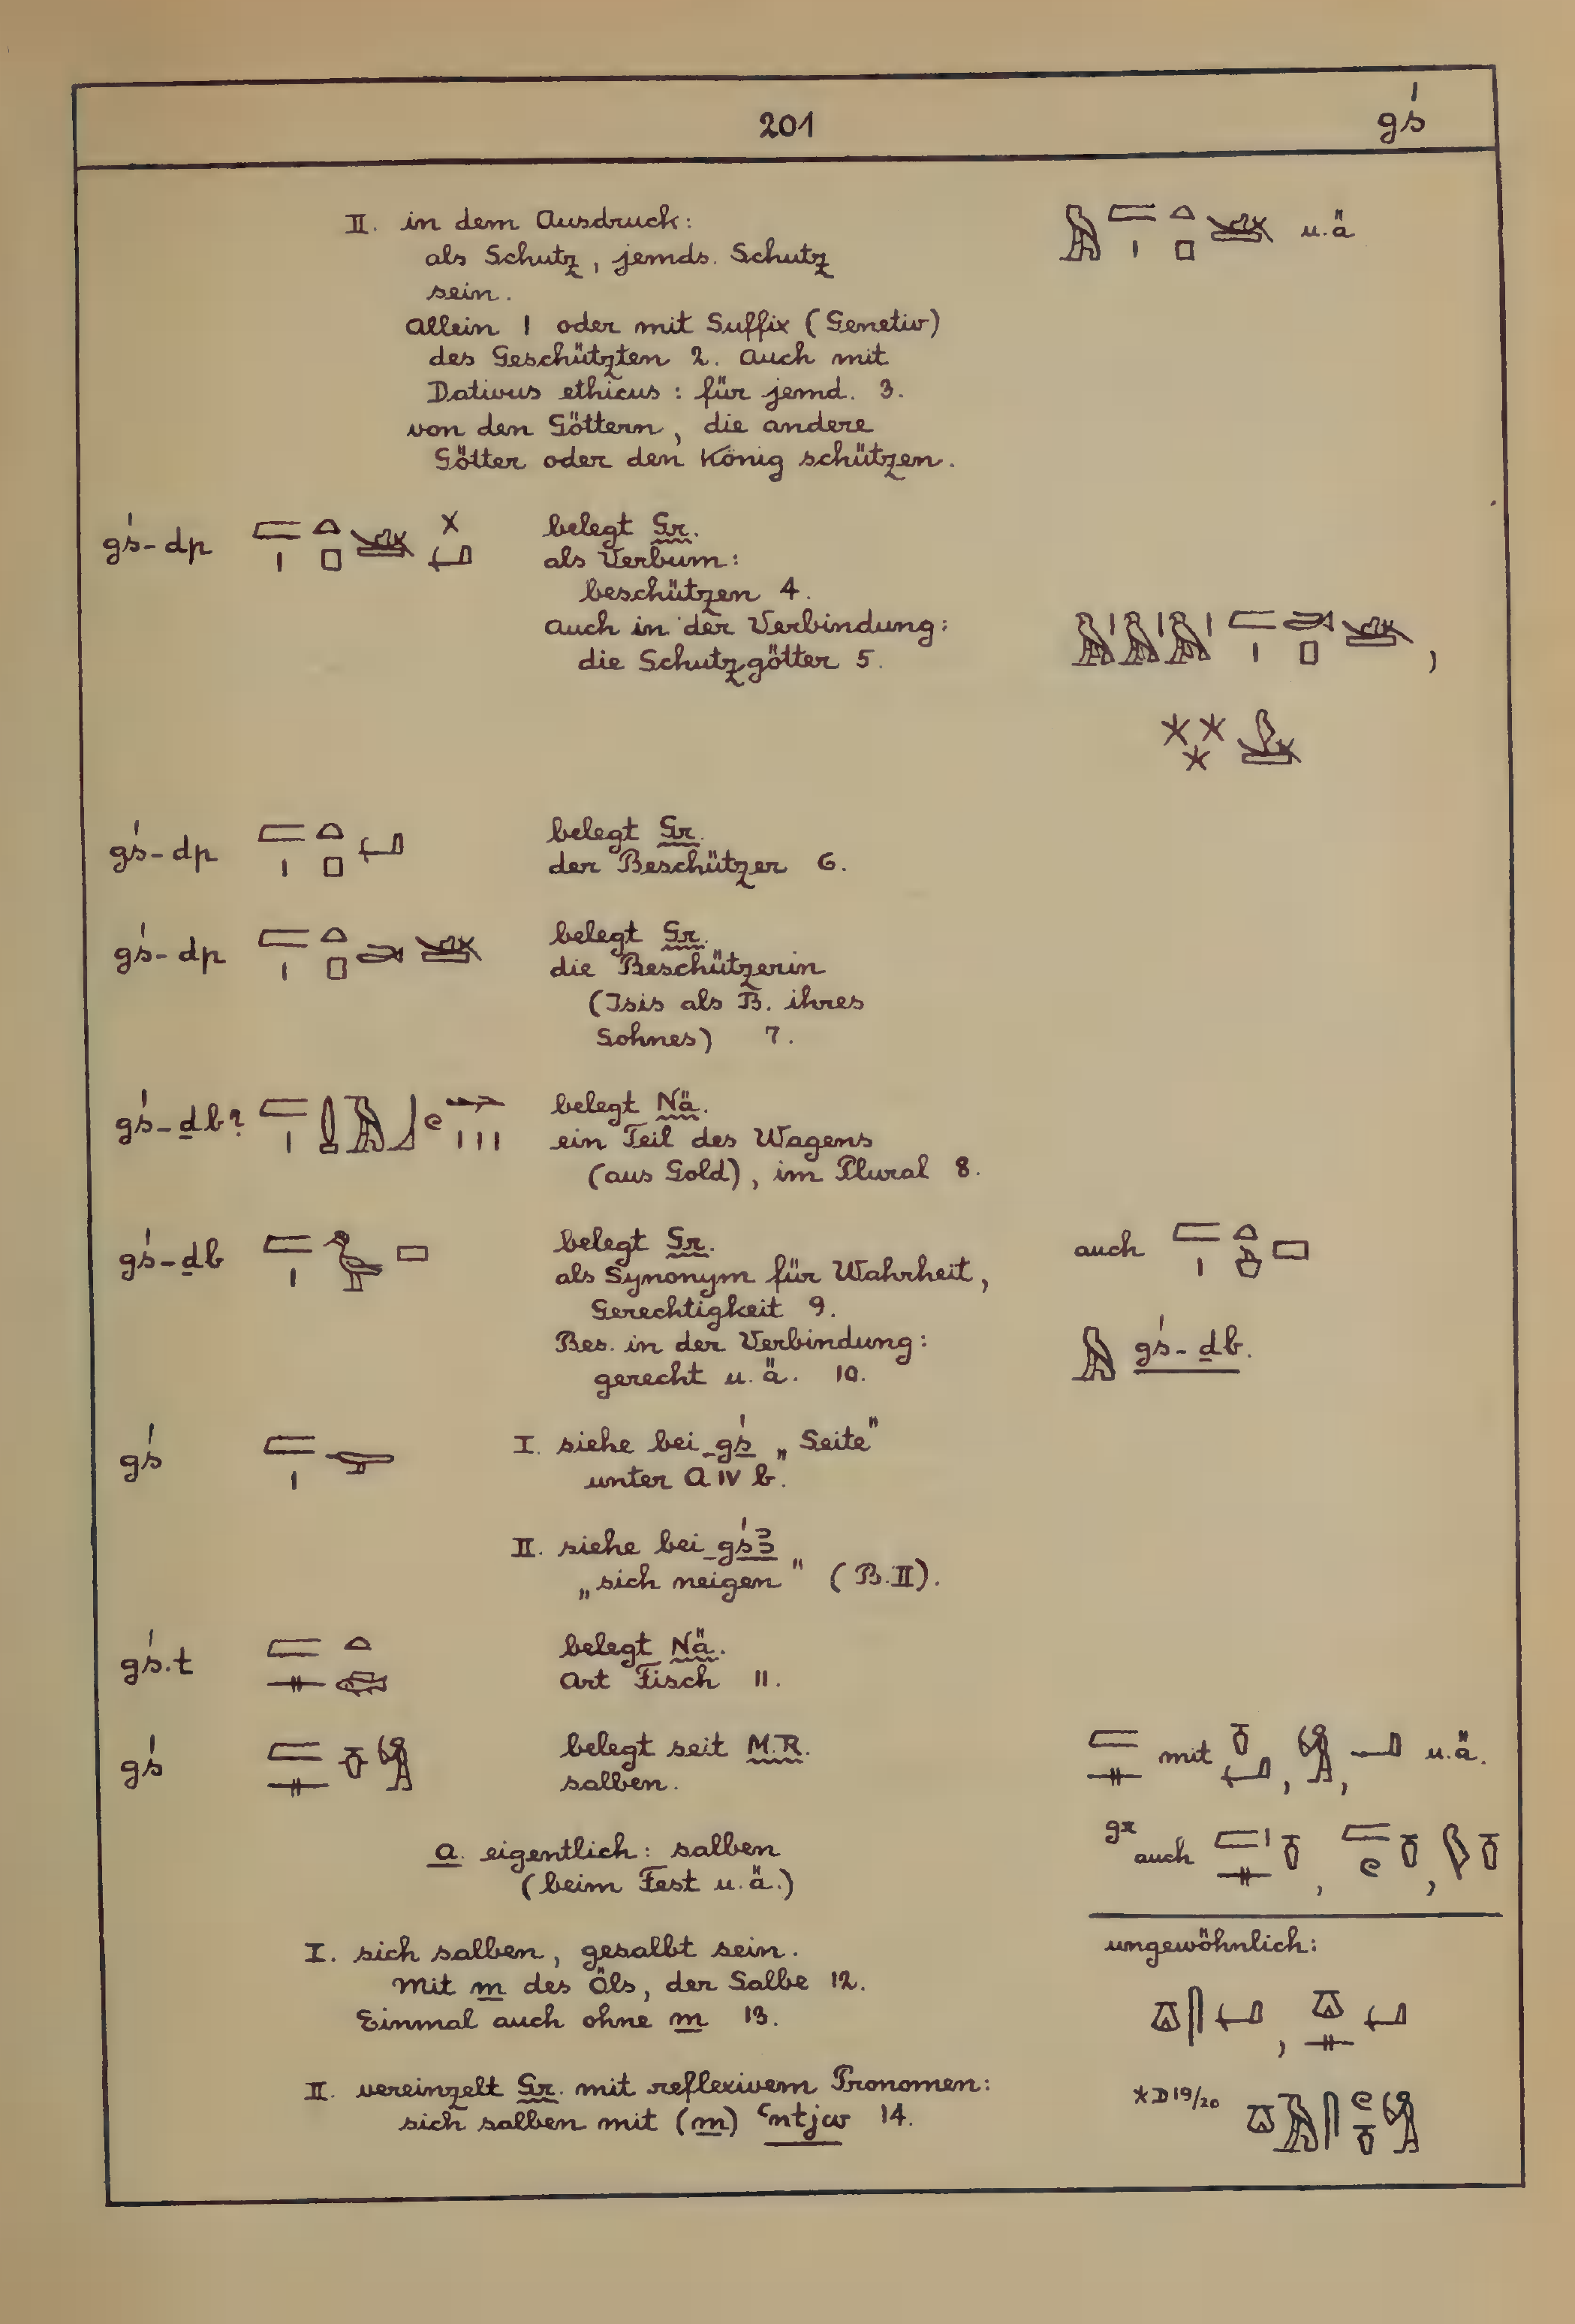 201
gś
II. in dem Ausdruck:
als Schutz, jemds. Schutz
sein.
Allein 1 oder mit Suffix (Genetiv)
des Geschützten 2. Auch mit
Dativus ethicus: für jemd. 3.
von den Göttern, die andere
Götter oder den König schützen.
u.ä
gś-dp
belegt Gr.
als Verbum:
beschützen 4.
Auch in der Verbindung:
die Schutzgötter 5.
gś-dp
belegt Gr.
der Beschützer 6.
gś-dp
belegt Gr.
die Beschützerin
(Isis als B. ihres
Sohnes) 7.
gś-ḏb?
belegt Nä.
ein Teil des Wagens
(aus Gold), im Plural 8.
gś-ḏb
belegt Gr.
als Synonym für Wahrheit,
Gerechtigkeit 9.
Bes. in der Verbindung:
gerecht u.ä. 10.
auch
gś-ḏb.
gś
I. siehe bei gś „Seite"
unter A IV b.
II. siehe bei gśꜣ
„sich neigen" (B.II).
gś.t
belegt Nä.
Art Fisch 11.
gś
belegt seit M.R.
salben.
mit , , u.ä.
a. eigentlich: salben
(beim Fest u.ä.)
gr auch
I. sich salben, gesalbt sein.
Mit m des Öls, der Salbe 12.
Einmal auch ohne m 13.
ungewöhnlich:
II. vereinzelt Gr. mit reflexivem Pronomen:
sich salben mit (m) ꜥntjw 14.
*D19/20